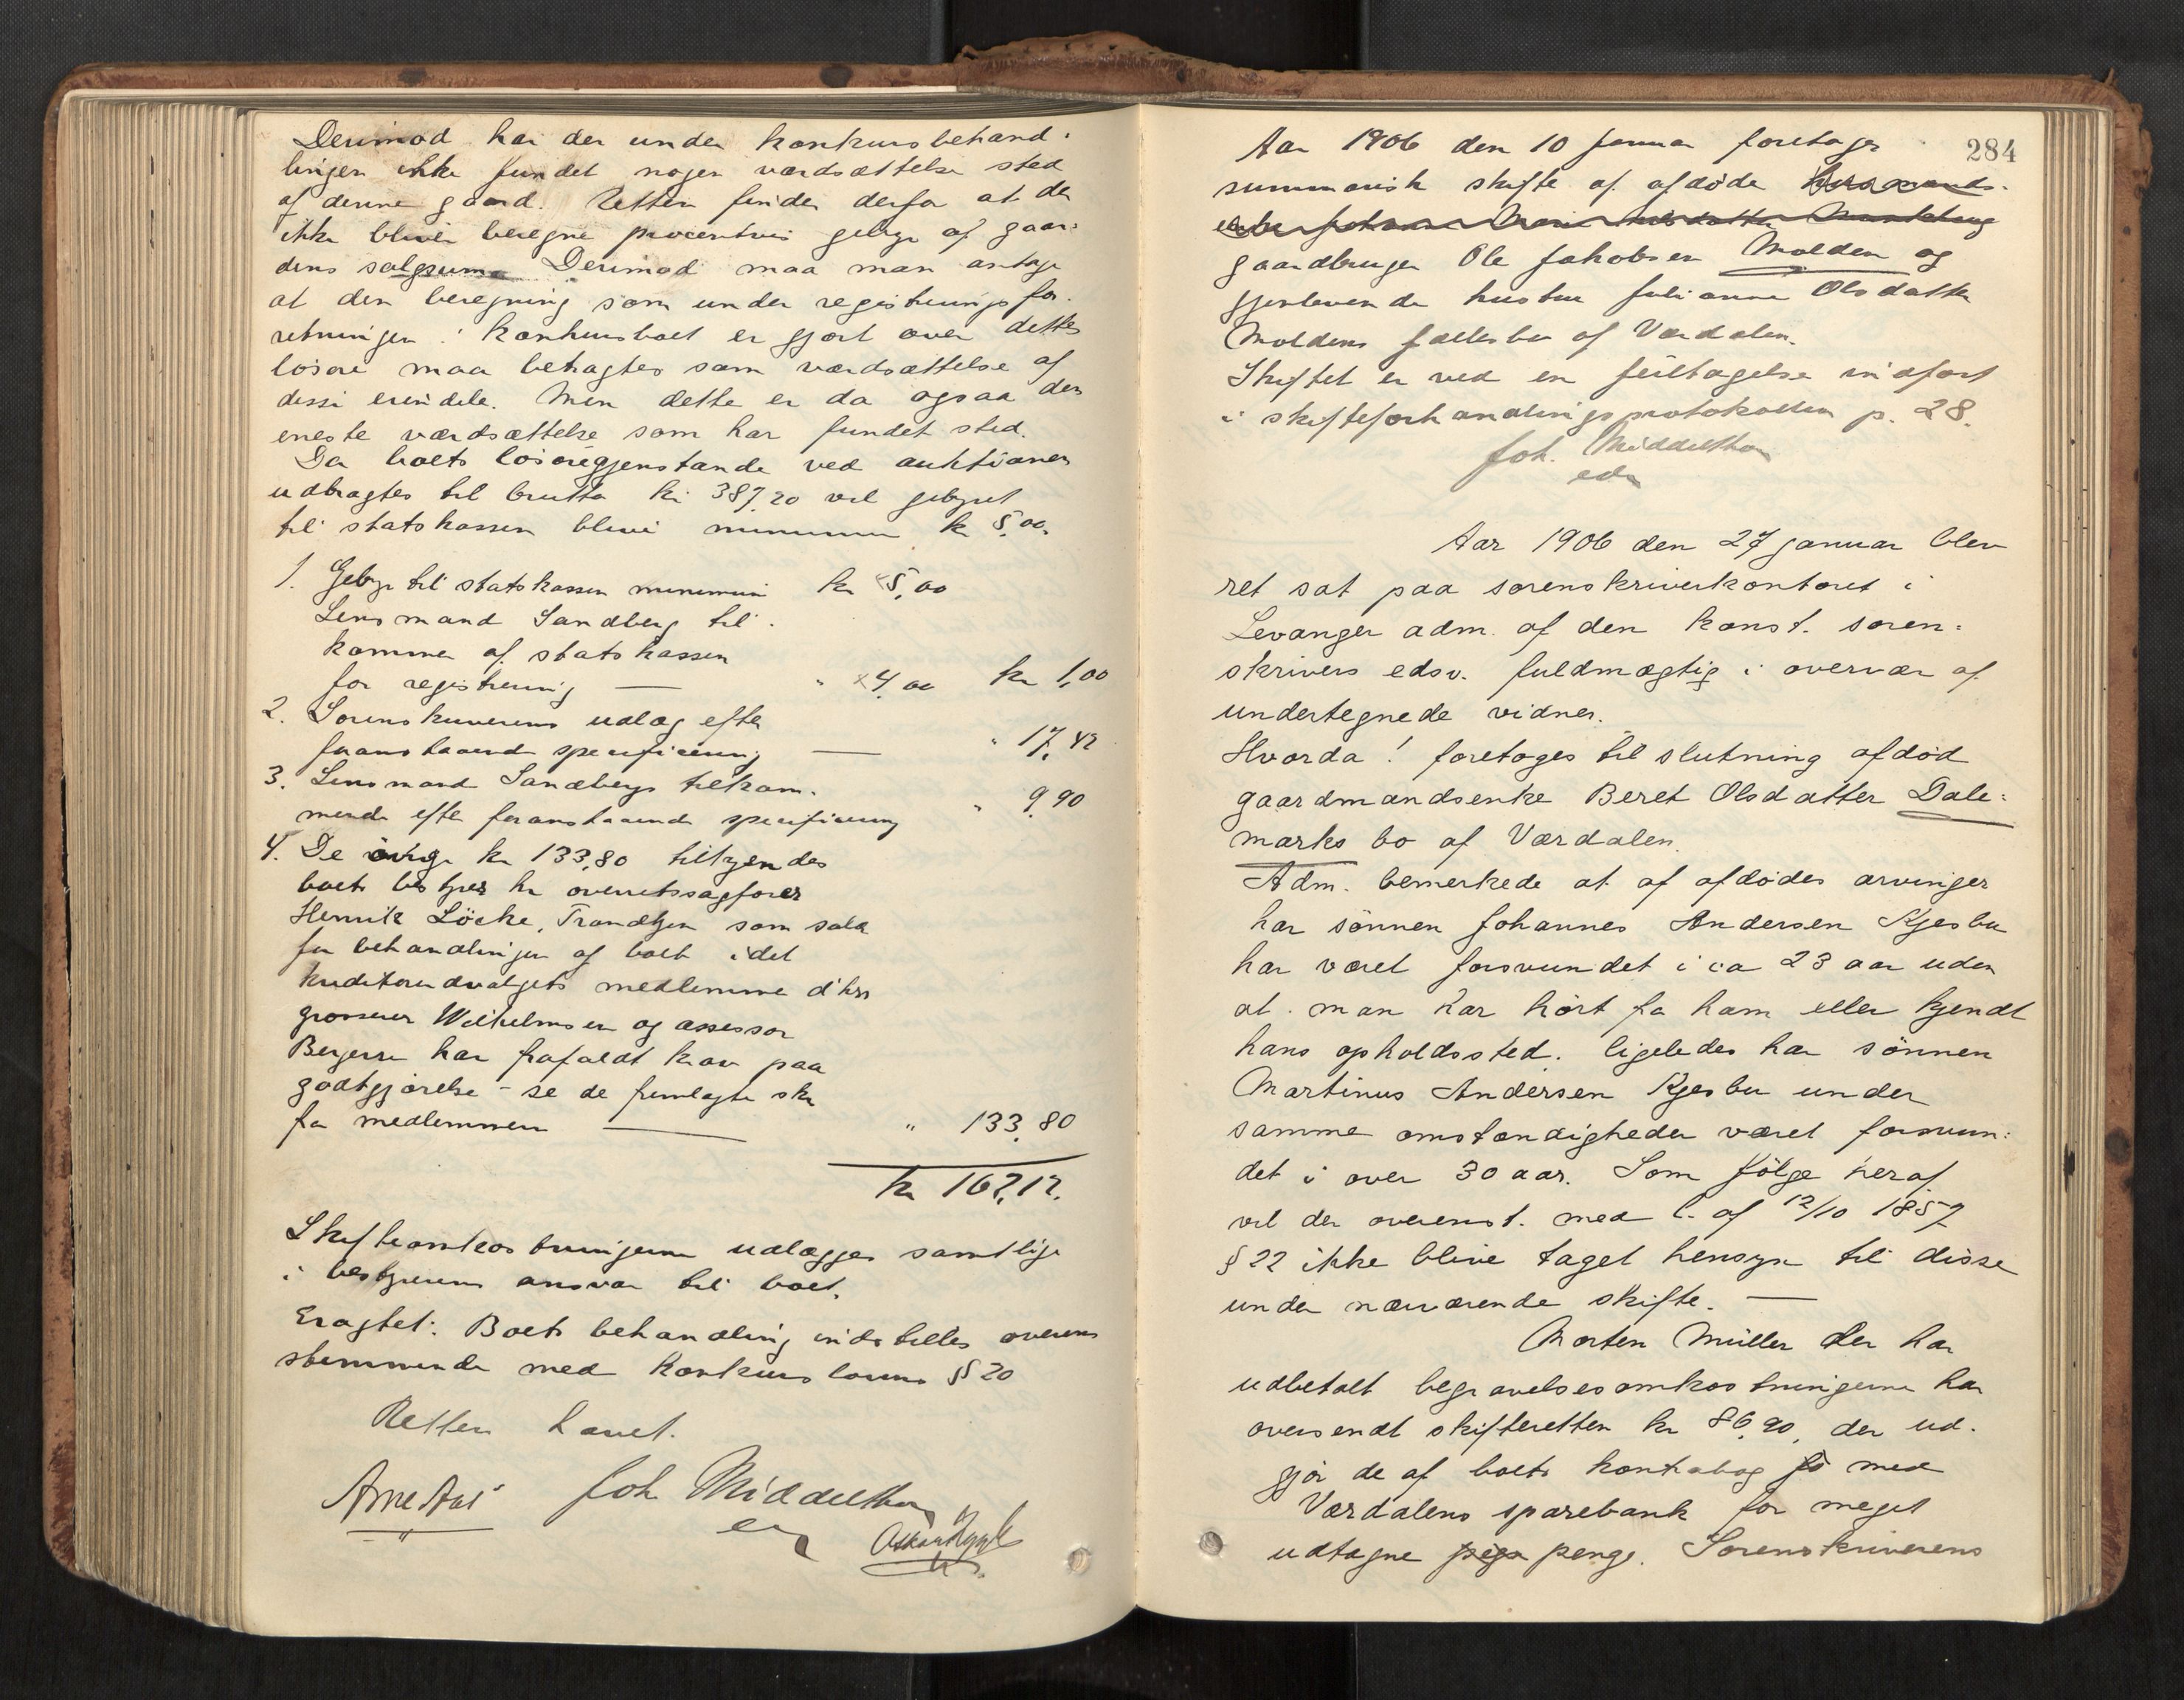 Derimod har der under konkursbehand-
lingen ikke fundet nogen værdsættelse sted
af denne gaard. Retten finder derfor at der
ikke bliver beregne procentvis gebyr af gaar-
dens salgssum. Derimod maa man antage
at den beregning som under registreringsfor-
retningen i konkursboet er gjort over dettes
løsøre maa betragtes som værdsættelse af
disse eiendele. Men dette er da ogsaa den
eneste værdsættelse som har fundet sted.
Da boets løsøregjenstande ved auktionen
udbragtes til brutto kr 387,20 vil gebyret
til statskassen blive minimum kr 5,00.
1. Gebyr til statskassen minimum kr 5,00
Lensmand Sandberg til-
komme af statskassen
for registrering — " 4,00 kr 1,00
2. Sorenskriverens udlæg efter
foranstaaende specificering — " 17,42
3. Lensmand Sandbergs tilkom-
mende efter foranstaaende specificering " 9,90
4. De øvrige kr 133,80 tilkjendes
boets bestyrer hr overretssagfører
Henrik Löcke, Trondhjem som salær
for behandlingen af boet idet
kreditorudvalgets medlemmer d'hrr
grosserer Wilhelmsen og assessor
Bergersen har frafaldt krav paa
godtgjørelse - se de fremlagte skr
fra medlemmerne — " 133,80
kr 162,12.
Skifteomkostningerne udlægges samtlige
i bestyrerens ansvar til boet.
Eragtet: Boets behandling indstilles overens
stemmende med konkurslovens § 20
Retten hævet.
Arne Aas Joh Middelthon
ed
Aar 1906 den 10 januar foretages 284
summarisk skifte af afdøde
gaardbruger Ole Jakobsen Molden og
gjenlevende hustru Julianna Olsdatter
Moldens fællesbo af Værdalen.
Skiftet er ved en feiltagelse indført
i skifteforhandlingsprotokollen p. 28.
Joh. Middelthon
edsv
Aar 1906 den 27 januar blev
ret sat paa sorenskriverkontoret i
Levanger adm. af den konst. soren-
skrivers edsv. fuldmægtig i overvær af
undertegnede vidner.
Hvorda! foretoges til slutning afdød
gaardmandsenke Beret Olsdatter Dale-
marks bo af Værdalen.
Adm. bemerkede at af afdødes arvinger
har sønnen Johannes Andersen Kjesbu
har været forsvundet i ca 23 aar uden
at man har hørt fra ham eller kjendt
hans opholdssted. ligeledes har sønnen
Martinus Andersen Kjesbu under
samme omstændigheder været forsvun-
det i over 30 aar. Som følge heraf
vil der overenst. med l. af 12/10 1857
§ 22 ikke blive taget hensyn til disse
under nærværende skifte. —
Morten Müller der har
udbetalt begravelsesomkostningerne har
oversendt skifteretten kr 86,90, der ud-
gjør de af boets kontrabog med
Værdalens sparebank for meget
udtagne penge. Sorenskriverens